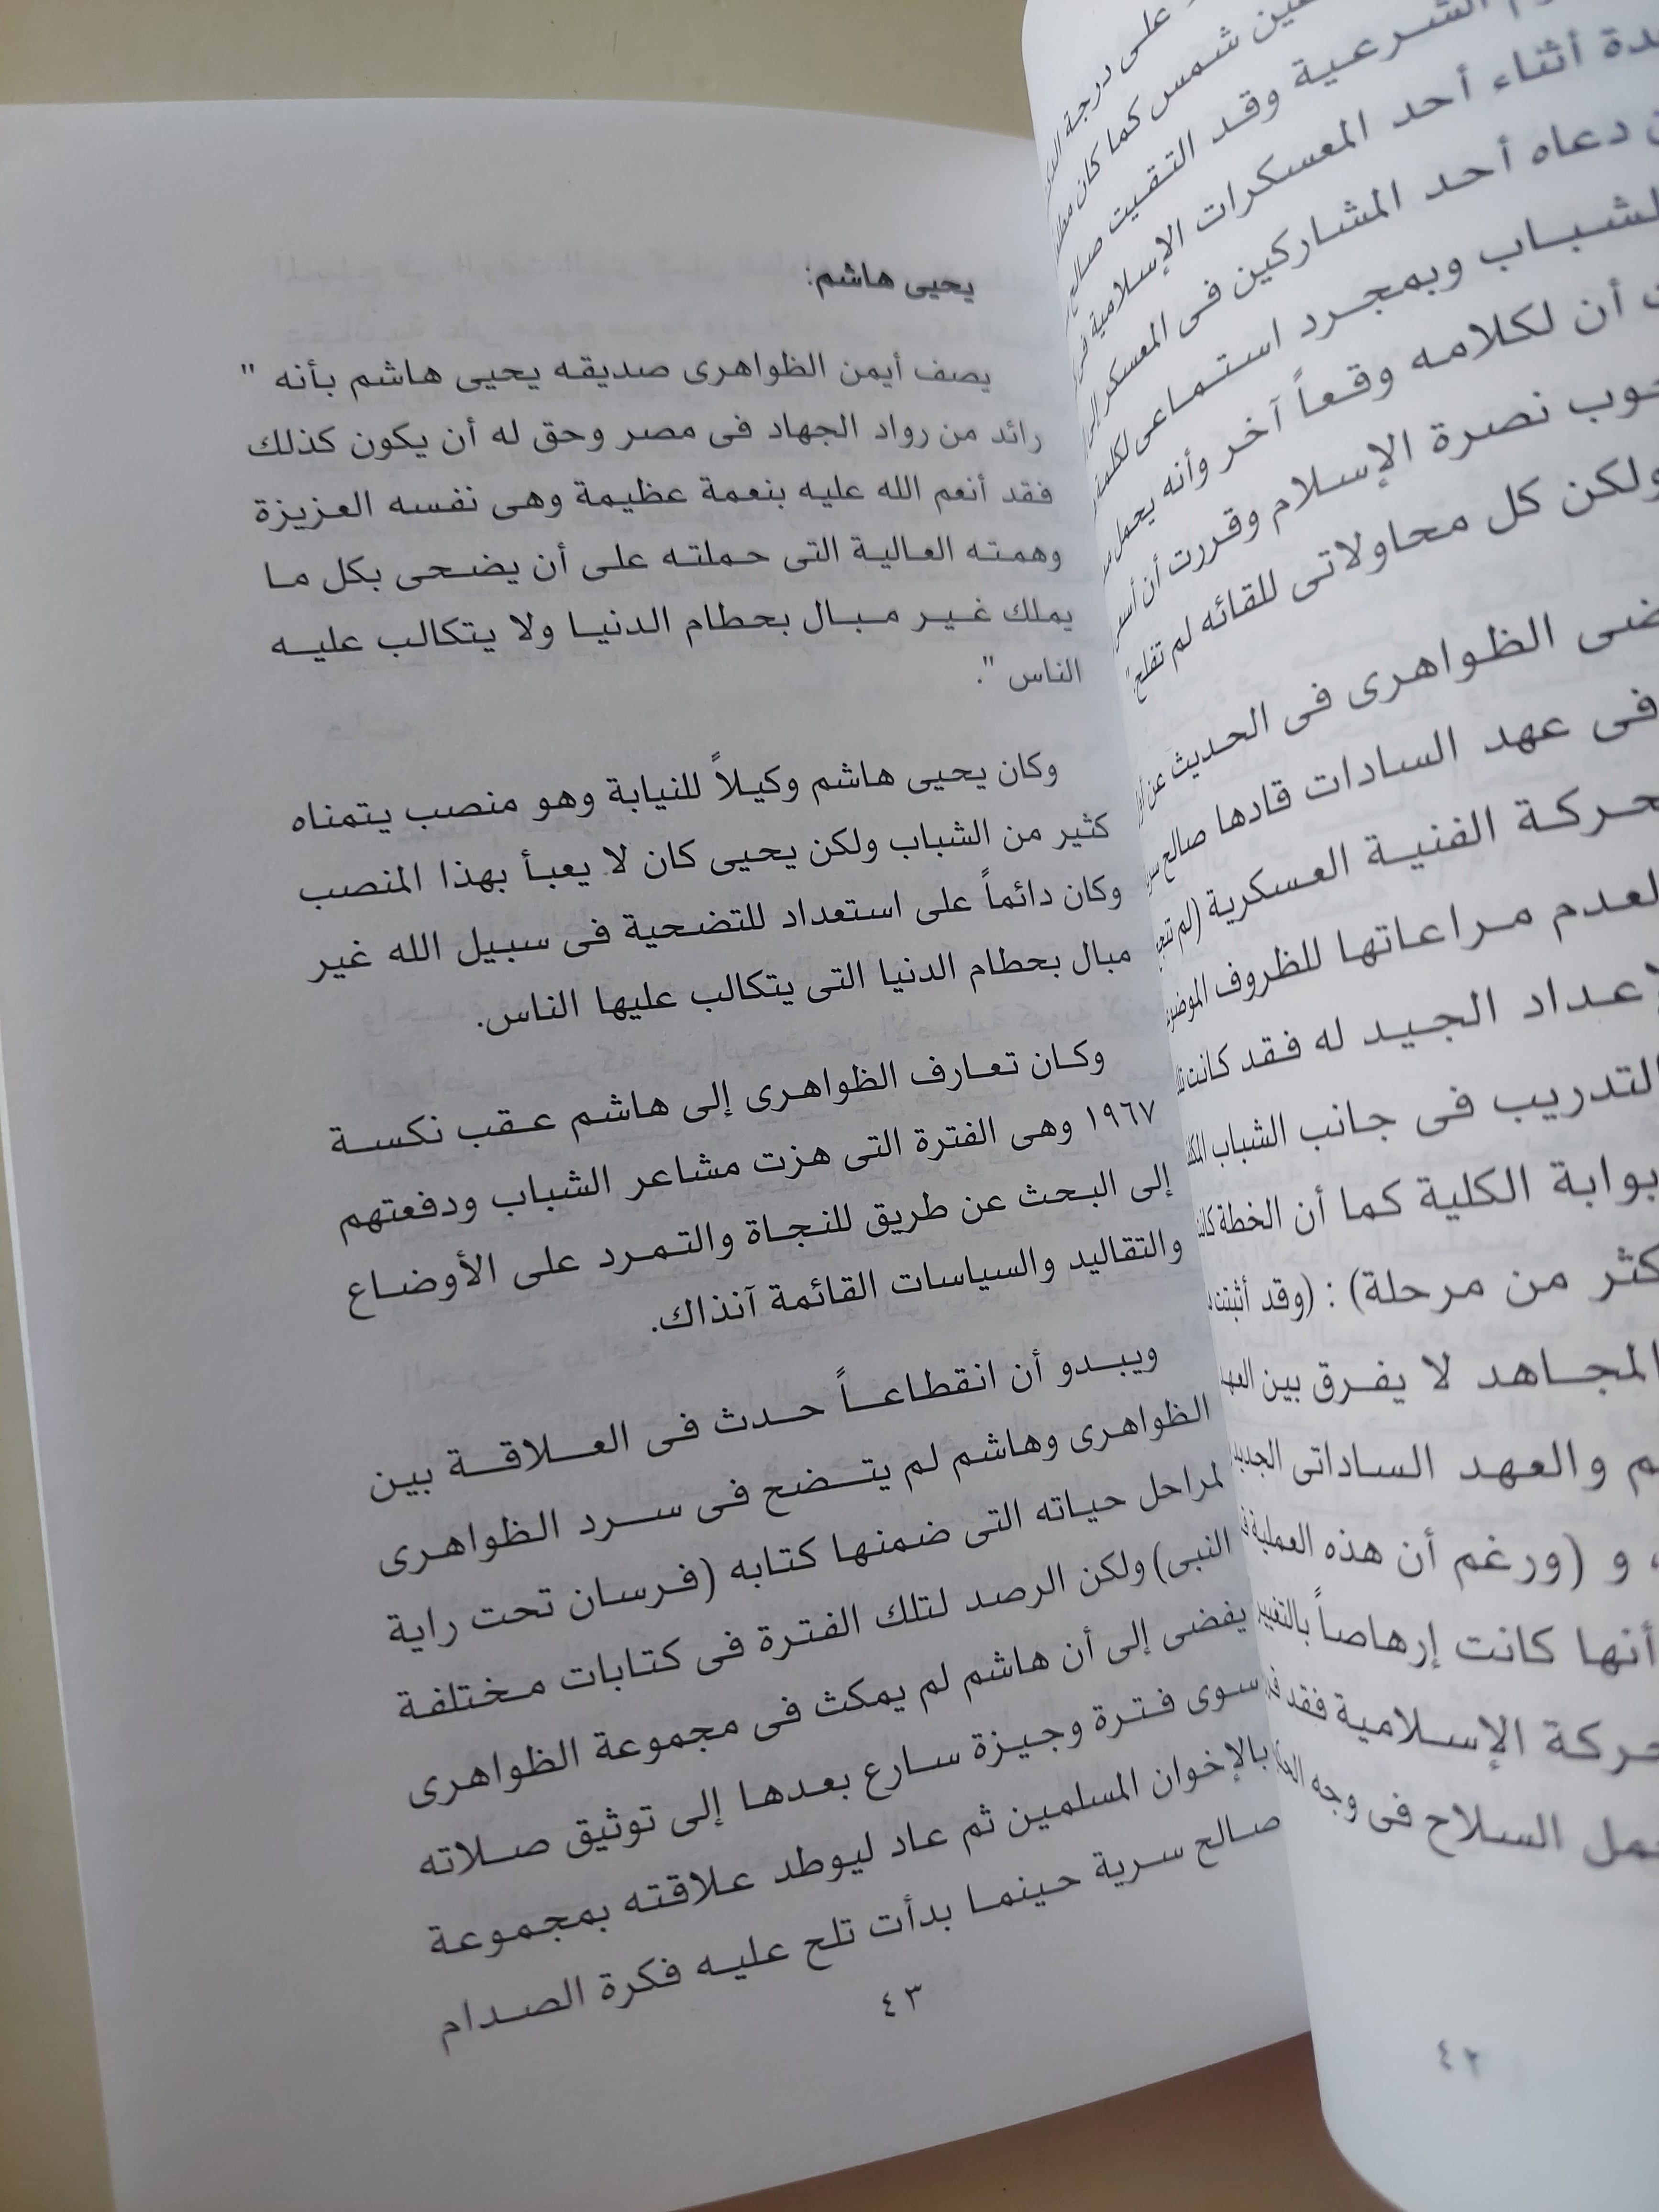 على درجة
عين شمس كما كان
الشرعية وقد التقيت صالح
أثناء أحد المعسكرات الإسلامية
دعاه أحد المشاركين فى المعسكر
الشباب وبمجرد استماعى
أن لكلامه وقعاً آخر وأنه يحمل
نصرة الإسلام وقررت أن
ولكن كل محاولاتى للقائه لم تفلح"
الظواهرى فى الحديث عن
فى عهد السادات قادها صالح
الفنية العسكرية (لم
لعدم مراعاتها للظروف
الجيد له فقد كانت
التدريب فى جانب الشباب
بوابة الكلية كما أن الخطة
من مرحلة) : (وقد أثبتت
المجاهد لا يفرق بين
والعهد الساداتى
، و (ورغم أن هذه العملية
أنها كانت إرهاصاً بالتغيير
الإسلامية فقد
السلاح فى وجه
٤٢
يحيى هاشم:
يصف أيمن الظواهرى صديقه يحيى هاشم بأنه "
رائد من رواد الجهاد فى مصر وحق له أن يكون كذلك
فقد أنعم الله عليه بنعمة عظيمة وهى نفسه العزيزة
وهمته العالية التى حملته على أن يضحى بكل ما
يملك غير مبال بحطام الدنيا ولا يتكالب عليه
الناس ".
وكان يحيى هاشم وكيلاً للنيابة وهو منصب يتمناه
كثير من الشباب ولكن يحيى كان لا يعبأ بهذا المنصب
وكان دائماً على استعداد للتضحية فى سبيل الله غير
مبال بحطام الدنيا التى يتكالب عليها الناس.
وكان تعارف الظواهرى إلى هاشم عقب نكسة
١٩٦٧ وهى الفترة التى هزت مشاعر الشباب ودفعتهم
إلى البحث عن طريق للنجاة والتمرد على الأوضاع
والتقاليد والسياسات القائمة آنذاك.
ويبدو أن انقطاعاً حدث فى العلاقة بين
الظواهرى وهاشم لم يتضح فى سرد الظواهرى
لمراحل حياته التى ضمنها كتابه (فرسان تحت راية
النبى) ولكن الرصد لتلك الفترة فى كتابات مختلفة
يفضى إلى أن هاشم لم يمكث فى مجموعة الظواهرى
سوى فترة وجيزة سارع بعدها إلى توثيق صلاته
بالإخوان المسلمين ثم عاد ليوطد علاقته بمجموعة
صالح سرية حينما بدأت تلح عليه فكرة الصدام
٤٣